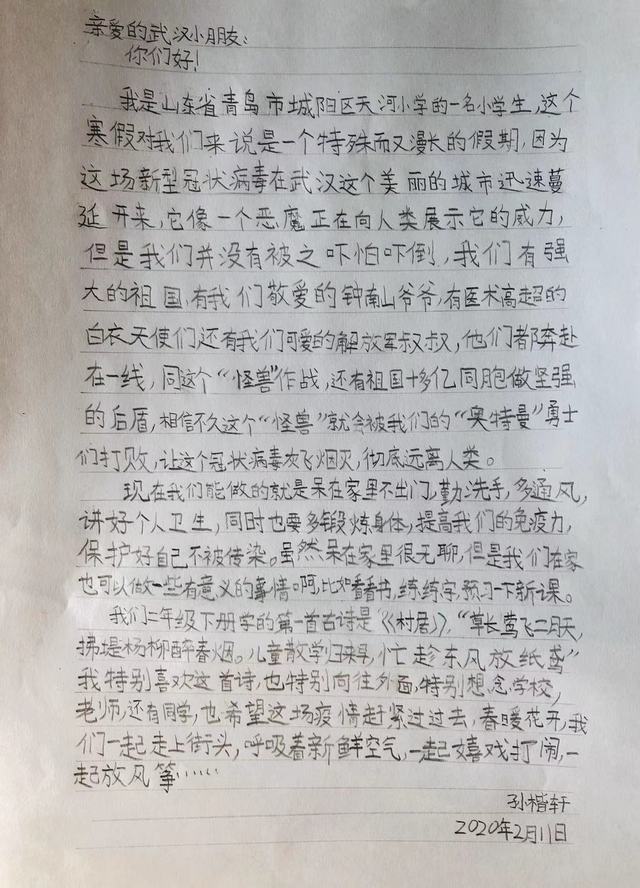 亲爱的武汉小朋友：
你们好！
我是山东省青岛市城阳区天河小学的一名小学生，这个
寒假对我们来说是一个特殊而又漫长的假期，因为
这场新型冠状病毒在武汉这个美丽的城市迅速蔓
延开来，它像一个恶魔正在向人类展示它的威力，
但是我们并没有被之吓怕吓倒，我们有强
大的祖国，有我们敬爱的钟南山爷爷，有医术高超的
白衣天使们还有我们可爱的解放军叔叔，他们都奔赴
在一线，同这个“怪兽”作战，还有祖国十多亿同胞做坚强
的后盾，相信不久这个“怪兽”就会被我们的“奥特曼”勇士
们打败，让这个冠状病毒灰飞烟灭，彻底远离人类。
现在我们能做的就是呆在家里不出门，勤洗手，多通风，
讲好个人卫生，同时也要多锻炼身体，提高我们的免疫力，
保护好自己不被传染。虽然呆在家里很无聊，但是我们在家
也可以做一些有意义的事情啊，比如看看书，练练字，预习一下新课。
我们二年级下册学的第一首古诗是《村居》，“草长莺飞二月天，
拂堤杨柳醉春烟。儿童散学归来早，忙趁东风放纸鸢”
我特别喜欢这首诗，也特别向往外面，特别想念学校，
老师，还有同学，也希望这场疫情赶紧过过去，春暖花开，我
们一起走上街头，呼吸着新鲜空气，一起嬉戏打闹，一
起放风筝……
孙楷轩
2020年2月11日